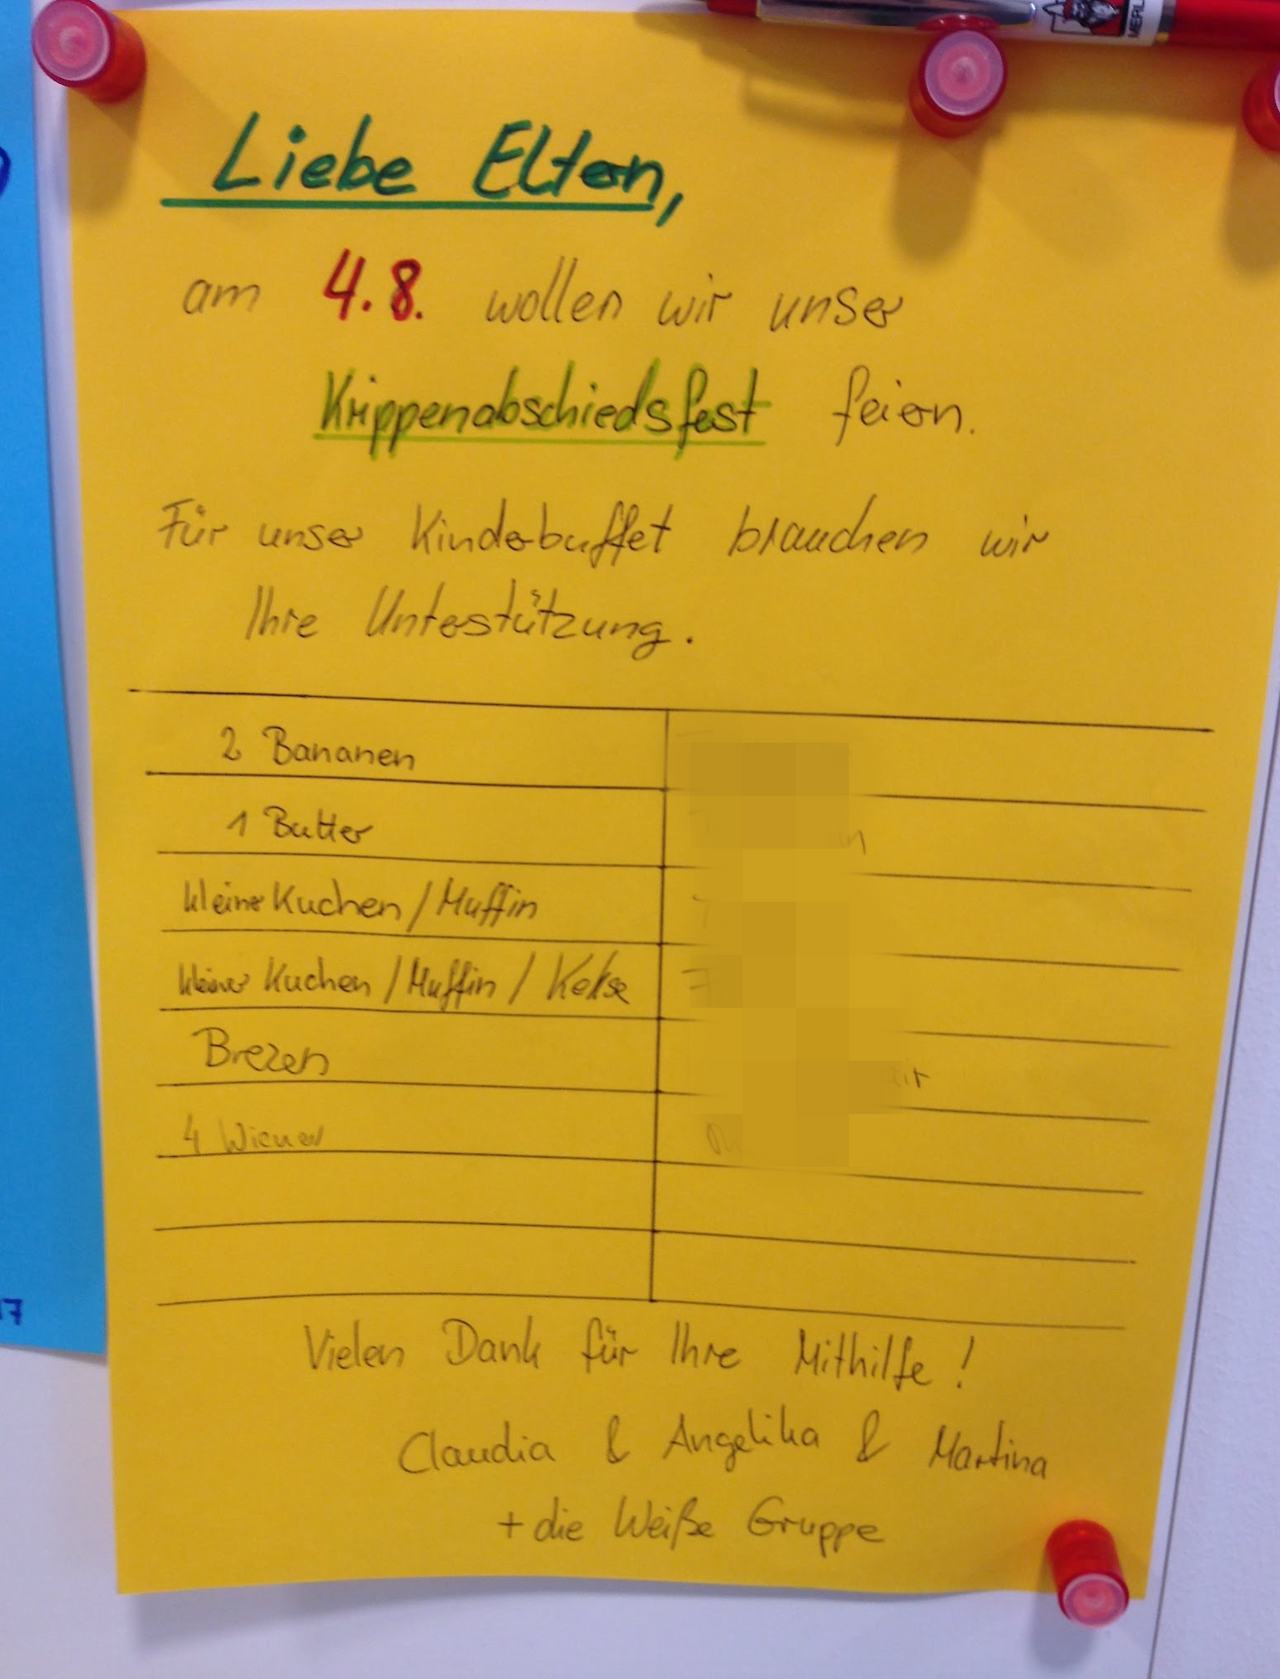 Liebe Eltern,
am 4.8. wollen wir unser
Krippenabschiedsfest feiern.
Für unser Kinderbuffet brauchen wir
Ihre Unterstützung.
2 Bananen
1 Butter
kleine Kuchen / Muffin
kleine Kuchen / Muffin / Kekse
Brezen
4 Wiener
Vielen Dank für Ihre Mithilfe!
Claudia & Angelika & Martina
+ die Weiße Gruppe
17